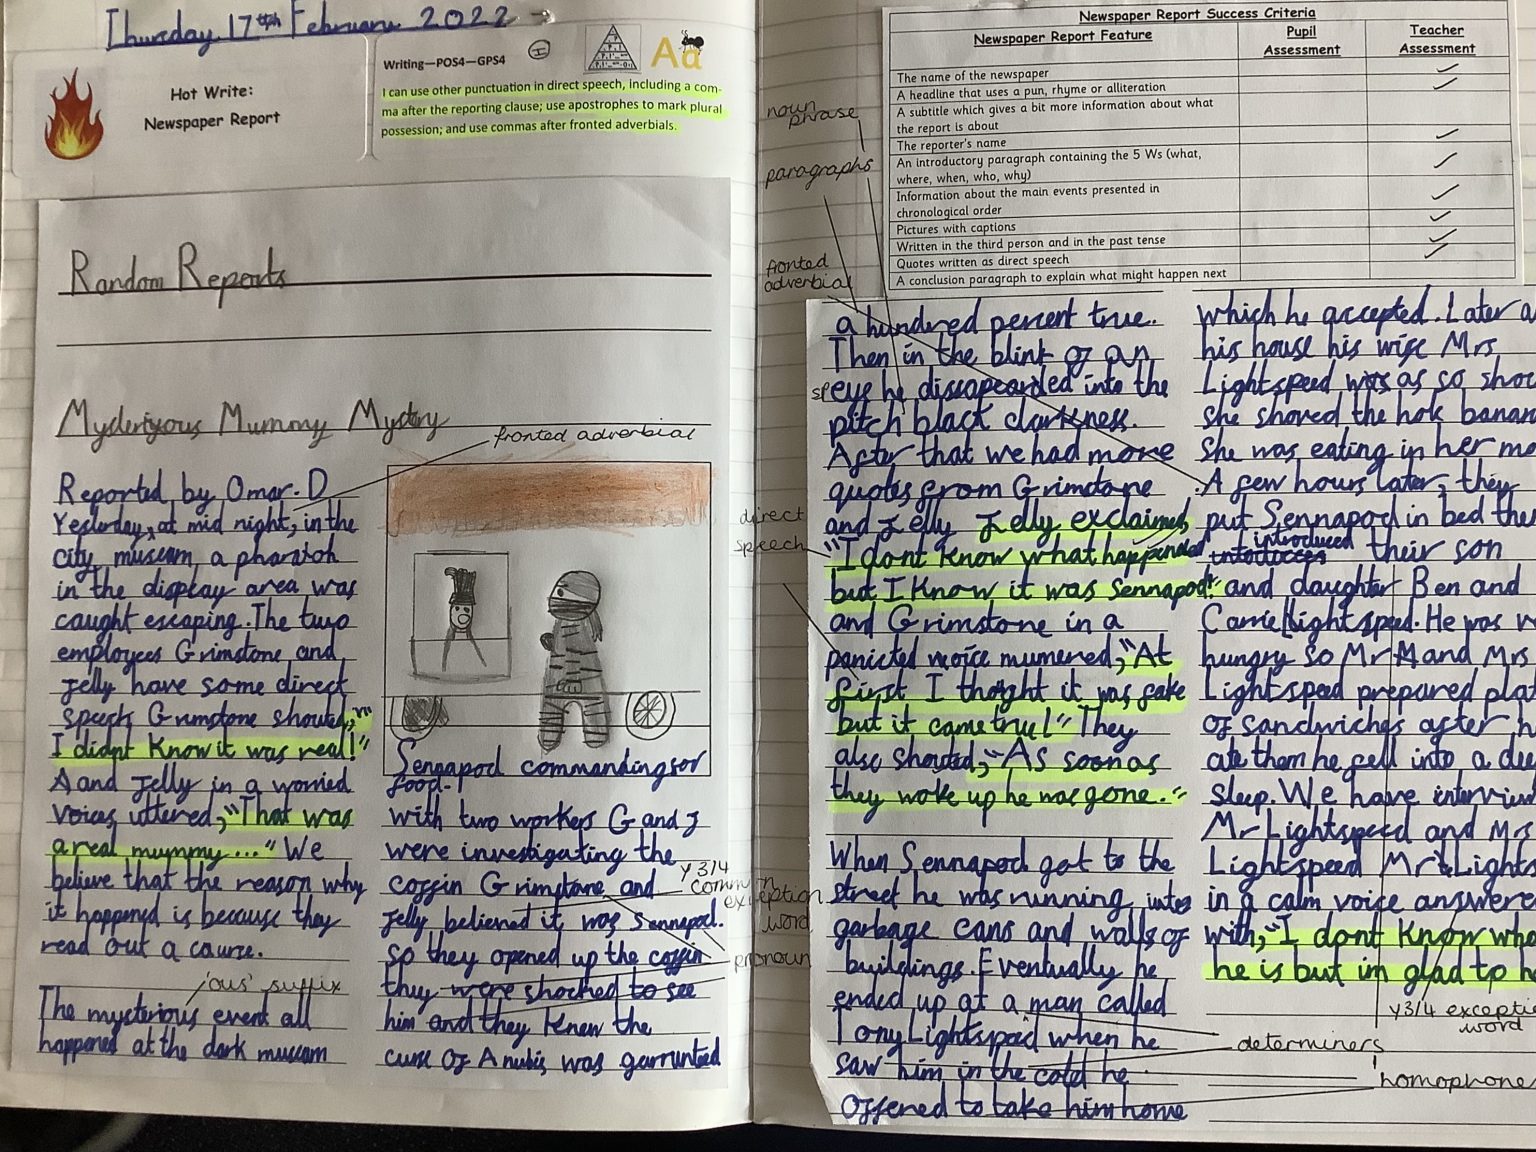 Thursday 17th February 2022
Hot Write:
Newspaper Report
Writing—POS4—GPS4
I
Aa
I can use other punctuation in direct speech, including a com-
ma after the reporting clause; use apostrophes to mark plural
possession; and use commas after fronted adverbials.
Random Reports
Mysteriyous Mummy Mystry
fronted adverbial
Reported by Omar.D
Yesterday, at mid night, in the
city museam, a pharaoh
in the display area was
caught escaping. The two
employees Grimstone and
Jelly have some direct
speech Grimstone shouted,"
I didnt know it was real!"
Aand Jelly in a worried
voices uttered, "That was
a real mummy..." We
believe that the reason why
it happened is because they
read out a course.
'ous' suffix
The mysterious event all
happened at the dark museam
Sennapod commanding for
food.
with two workers G and J
were investigating the
coffin Grimstone and
Jelly believed it was Sennapod.
so they opened up the coffin
they were shocked to see
him and they knew the
curse Of Anubis was garrunted
y3/4
common
exception
word
pronoun
noun
phrase
paragraphs
fronted
adverbial
direct
speech
Newspaper Report Success Criteria
Newspaper Report Feature
Pupil
Assessment
Teacher
Assessment
The name of the newspaper
A headline that uses a pun, rhyme or alliteration
A subtitle which gives a bit more information about what
the report is about
The reporter's name
An introductory paragraph containing the 5 Ws (what,
where, when, who, why)
Information about the main events presented in
chronological order
Pictures with captions
Written in the third person and in the past tense
Quotes written as direct speech
A conclusion paragraph to explain what might happen next
a hundred percent true.
Then in the blink of an
sp eye he dissapearded into the
pitch black darkness.
After that we had more
quotes from Grimstone
and Jelly Jelly exclaimed,
"I dont know what happended
but I know it was Sennapod!"
and Grimstone in a
panicted voice mumered, "At
first I thoght it was fake
but it came true!" They
also shouted, "As soon as
they woke up he was gone."
When Sennapod got to the
street he was running into
garbage cans and walls of
buildings. Eventually he
ended up at a man called
Tony Lightspeid when he
saw him in the cold he
offered to take him home
which he accepted. Later a
his house his wife Mrs
Lightspeed was as so shoc
she shoved the hole banan
She was eating in her mo
A few hours later, they
put Sennapod in bed the
introduced their son
and daughter Ben and
Carrie Lightspeed. He was
hungry so Mr and Mrs
Lightspeed prepared plat
of sandwiches after h
ate them he fell into a dee
sleep. We have interview
Mr Lightspeed and Mrs
Lightspeed Mr Lights
in a calm voice answere
with, "I dont know who
he is but im glad to h
y3/4 excepti
word
determiners
homophone